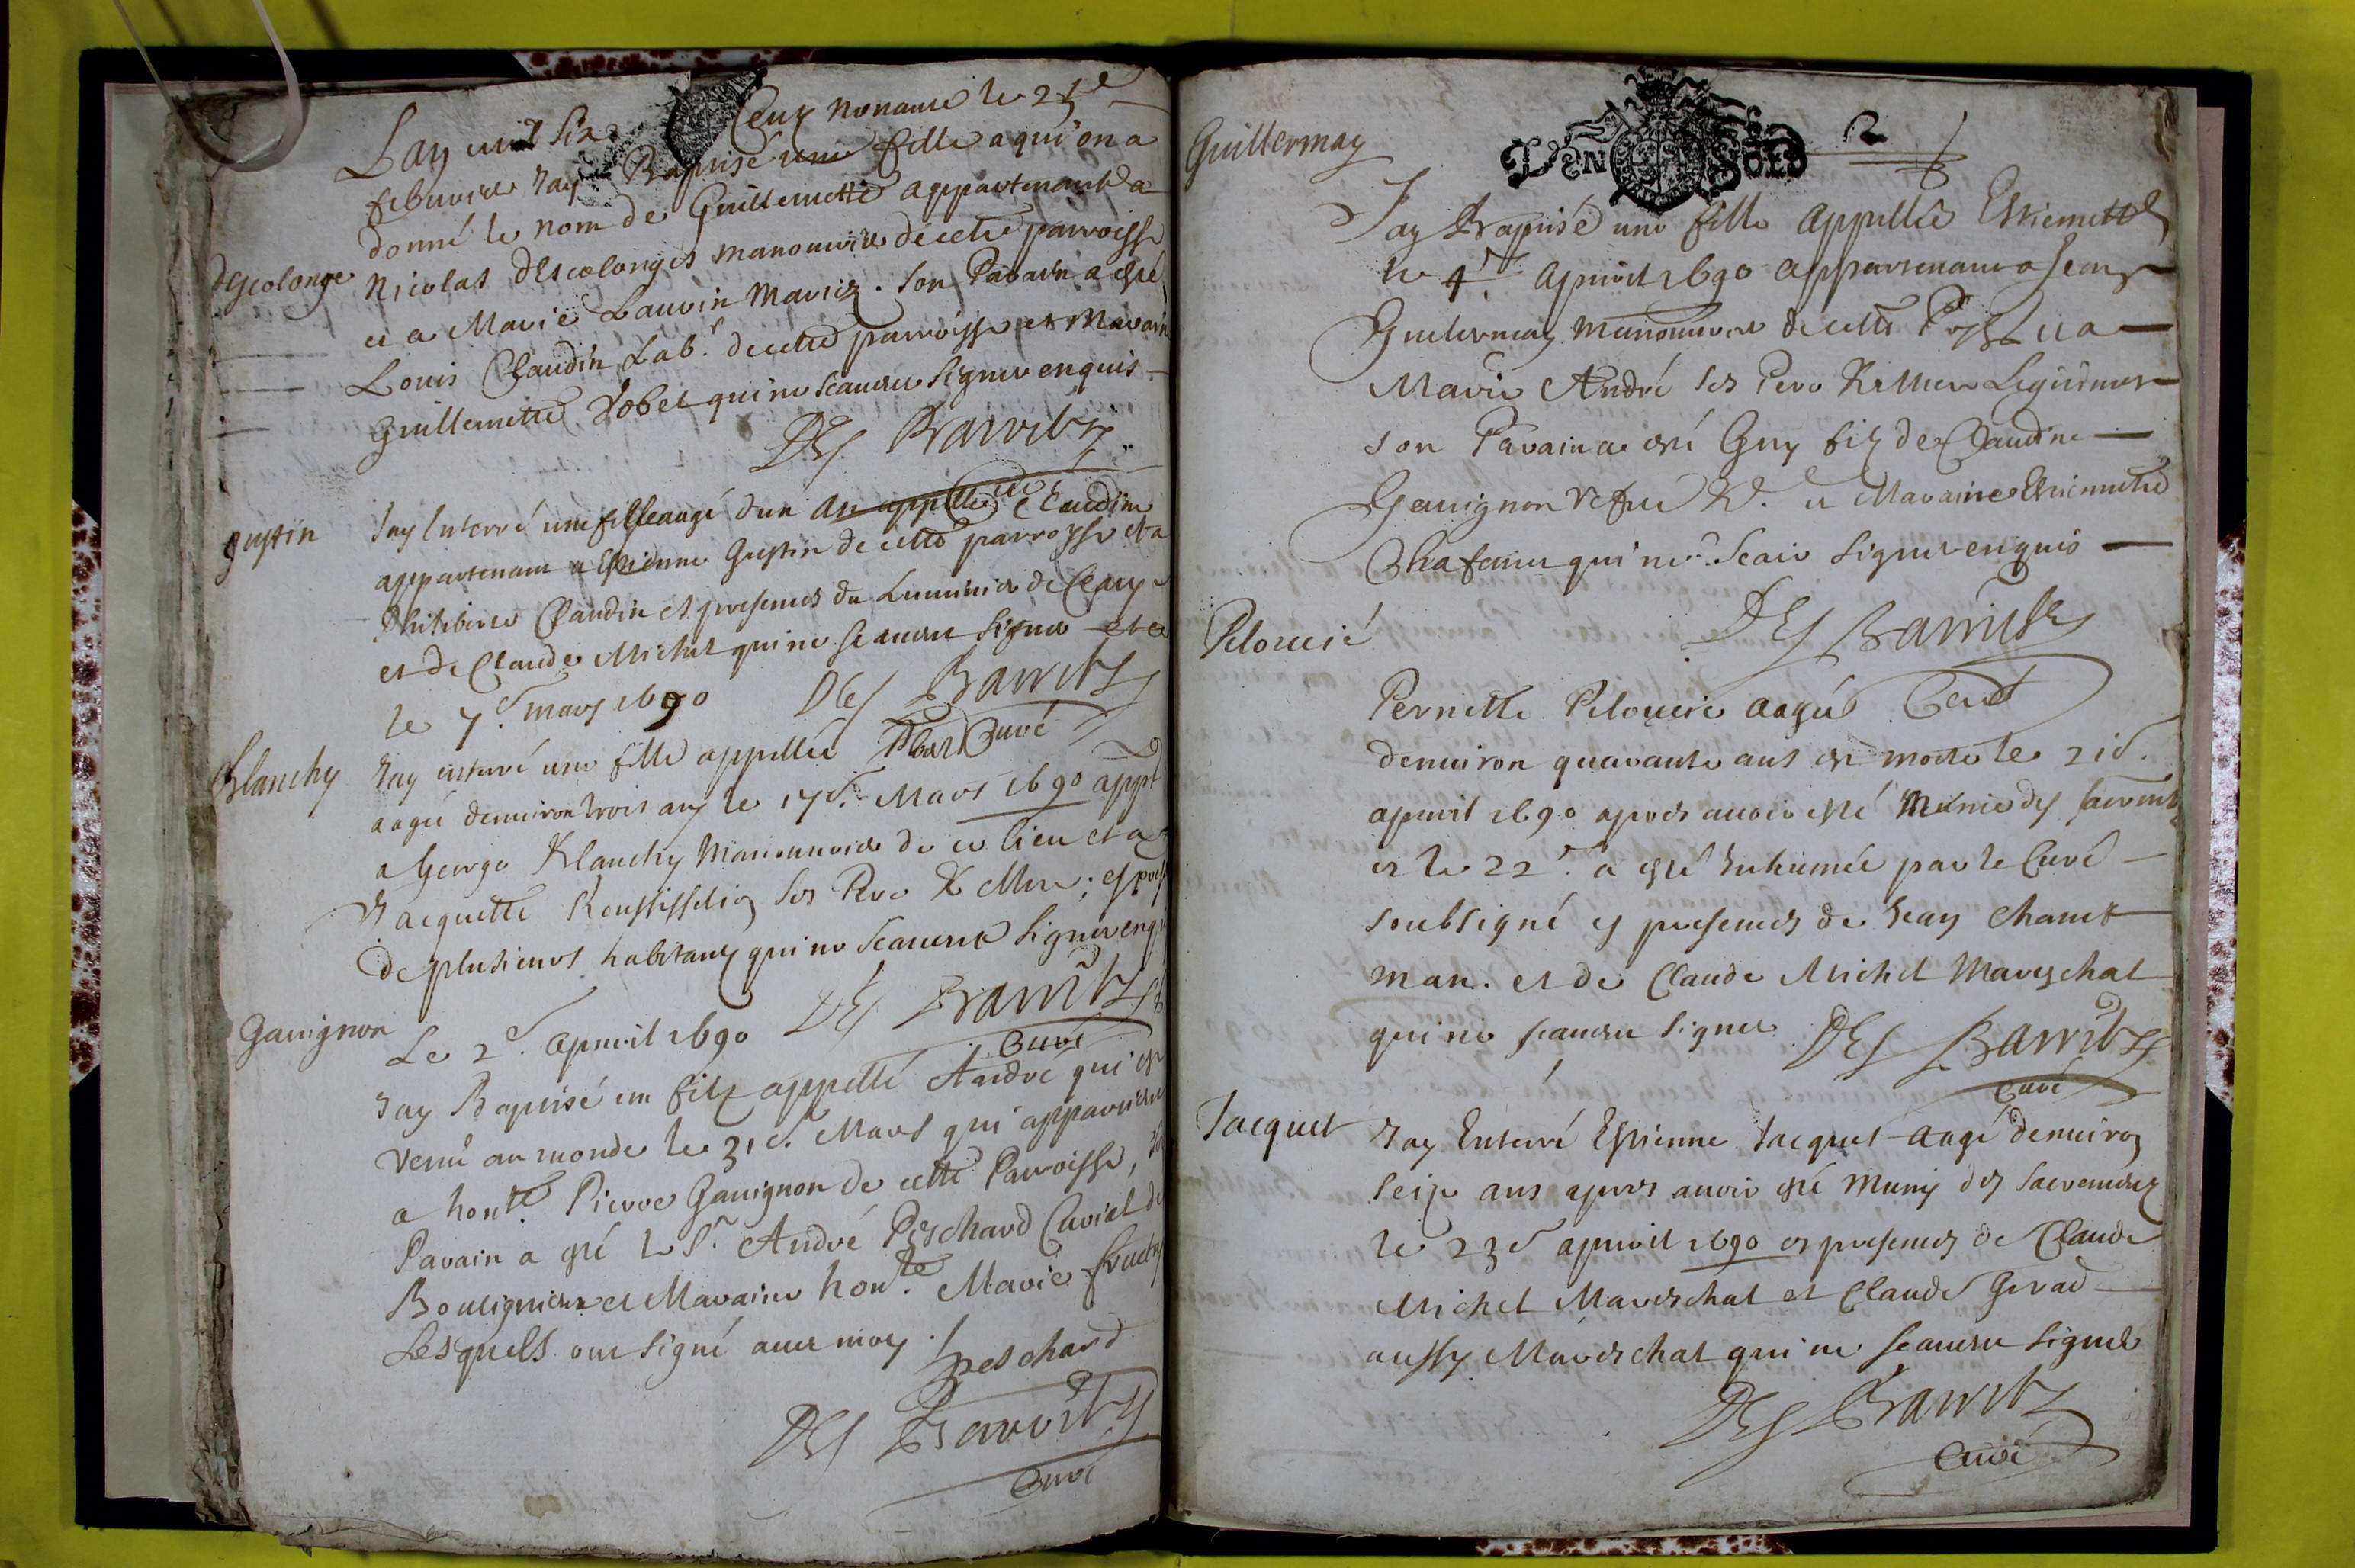 Lan mil Six Centz nonante le 25e
febuvier Jay Baptisé une fille a qui on a
donné le nom de Guillemette appartenant a
Descolonge
Nicolas Descolonges manouvrier de cette parroisse
et a Marie Lauvin Mariez. Son Parain a esté
Louis Claudin Lab. de cette parroisse et Maraine
Guillemette Jobet qui ne scauent signer enquis
Des Barritz
Gustin
Jay Enterré une fille aagé dun An appellée Claudine
appartenant a Estienne Gustin de cette parroysse et a
Philiberte Claudin es presences du Luminier de Clery
et de Claude Michel qui ne scauent signer
le 7e mars 1690 Des Barritz
Curé
Blanchy
Jay enterré une fille appellée
aagé denuiron trois ans le 17e. Mars 1690 appt
a George Blanchy Manouurier de ce lieu et a
Jacquette Ses Pere & Mere; es pres
de plusieurs habitans qui ne scauent signer enq
Des Barritz
Curé
Gauignon
Le 2e apuril 1690
Jay Baptisé un filz appellé André qui est
venu au monde le 31e. Mars qui appartient
a honte Pierre Gauignon de cette Parroisse,
Parain a esté le Sr. André Peschard Curial de
Bouligneux et Maraine honte. Marie
Lesquels ont signé auec moy
Peschard
Des Barritz
Curé
VEN SOLD
2
Guillermay
Jay Baptisé une fille appellée Estiemette
le 4e apuril 1690 appartenant a Jean
Guillermay manouurier de cette Prsse et a
Marie André ses Pere & Mere Legitimes
son Parain a esté Guy filz de Claudine
Gauignon Vefue &. et Maraine Estiemette
Chafaine qui ne scait signer enquis
Des Barritz
Curé
Peloucié
Pernette Peloucie aagée
denuiron quarante ans est morte le 21e.
apuril 1690 apres auoir esté Munie des sacremts
et le 22e. a esté Inhumée par le Curé
soubsigné es presences de Jean Chanet
man. et de Claude Michel Mareschal
qui ne scauent signer Des Barritz
Curé
Jacquet
Jay Enterré Estienne Jacquet aagé denuiron
seize ans apres auoir esté Muny des Sacrements
le 23e apuril 1690 es presences de Claude
Michel Mareschal et Claude Girad
aussy Mareschal qui ne scauent signer
Des Barritz
Curé